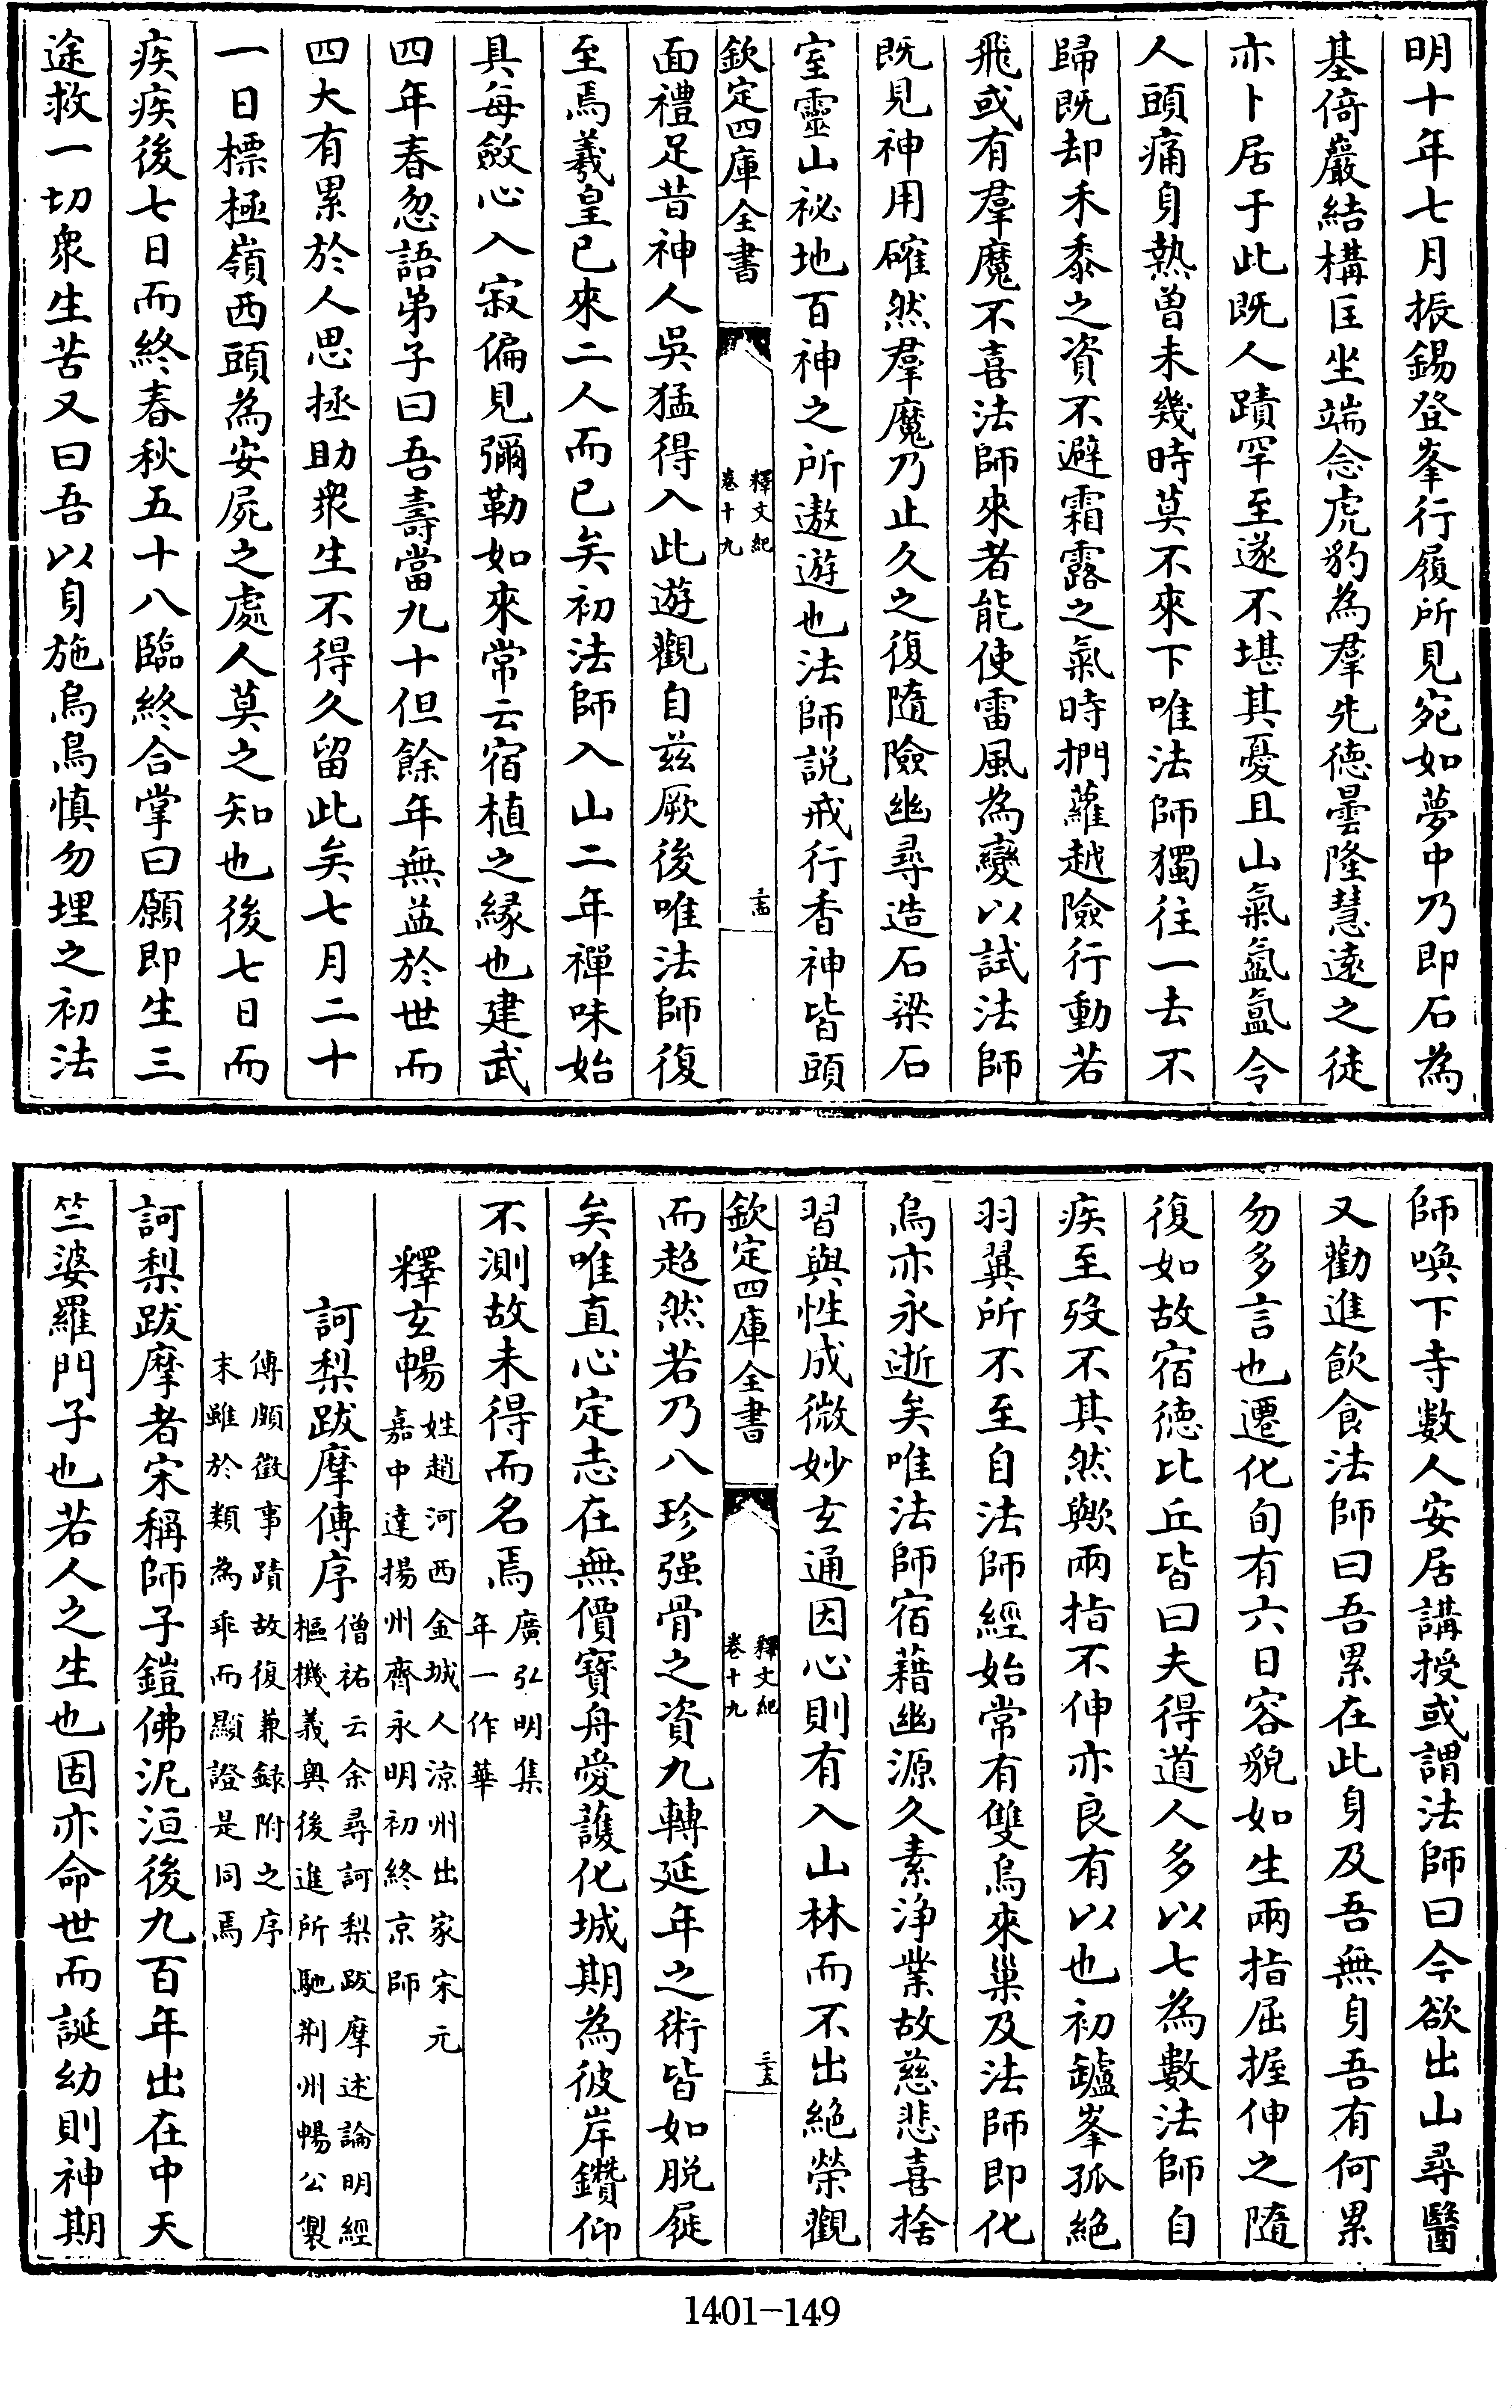 明十年七月振錫登峯行履所見宛如夢中乃即石為
基倚巖結構匡坐端念虎豹為羣先德曇隆慧遠之徒
亦卜居于此既人蹟罕至遂不堪其憂且山氣氤氳令
人頭痛身熱曾未幾時莫不來下唯法師獨往一去不
歸既却禾黍之資不避霜露之氣時捫蘿越險行動若
飛或有羣魔不喜法師來者能使雷風為變以試法師
既見神用確然羣魔乃止久之復隨險幽尋造石梁石
室靈山祕地百神之所遨遊也法師説戒行香神皆頭
欽定四庫全書
釋文紀
卷十九
三十四
面禮足昔神人吳猛得入此遊觀自兹厥後唯法師復
至焉羲皇已來二人而已矣初法師入山二年禪味始
具每斂心入寂偏見彌勒如來常云宿植之縁也建武
四年春忽語弟子曰吾壽當九十但餘年無益於世而
四大有累於人思拯助衆生不得久留此矣七月二十
一日標極嶺西頭為安屍之處人莫之知也後七日而
疾疾後七日而終春秋五十八臨終合掌曰願即生三
途救一切衆生苦又曰吾以身施烏鳥慎勿埋之初法
師喚下寺數人安居講授或謂法師曰今欲出山尋醫
又勸進飲食法師曰吾累在此身及吾無身吾有何累
勿多言也遷化旬有六日容貌如生兩指屈握伸之隨
復如故宿德比丘皆曰夫得道人多以七為數法師自
疾至歿不其然歟兩指不伸亦良有以也初鑪峯孤絶
羽翼所不至自法師經始常有雙烏來巢及法師即化
烏亦永逝矣唯法師宿藉幽源久素浄業故慈悲喜捨
習與性成微妙玄通因心則有入山林而不出絶榮觀
欽定四庫全書
釋文紀
卷十九
三十五
而超然若乃八珍强骨之資九轉延年之術皆如脱屣
矣唯直心定志在無價寶舟愛護化城期為彼岸鑽仰
不測故未得而名焉
廣弘明集
年一作華
釋玄暢
姓趙河西金城人涼州出家宋元
嘉中達揚州齊永明初終京師
訶梨跋摩傳序
僧祐云余尋訶梨跋摩述論明經
樞機義奥後進所馳荆州暢公製
傳頗徵事蹟故復兼録附之序
末雖於類為乖而顯證是同焉
訶梨跋摩者宋稱師子鎧佛泥洹後九百年出在中天
竺婆羅門子也若人之生也固亦命世而誕幼則神期
1401-149